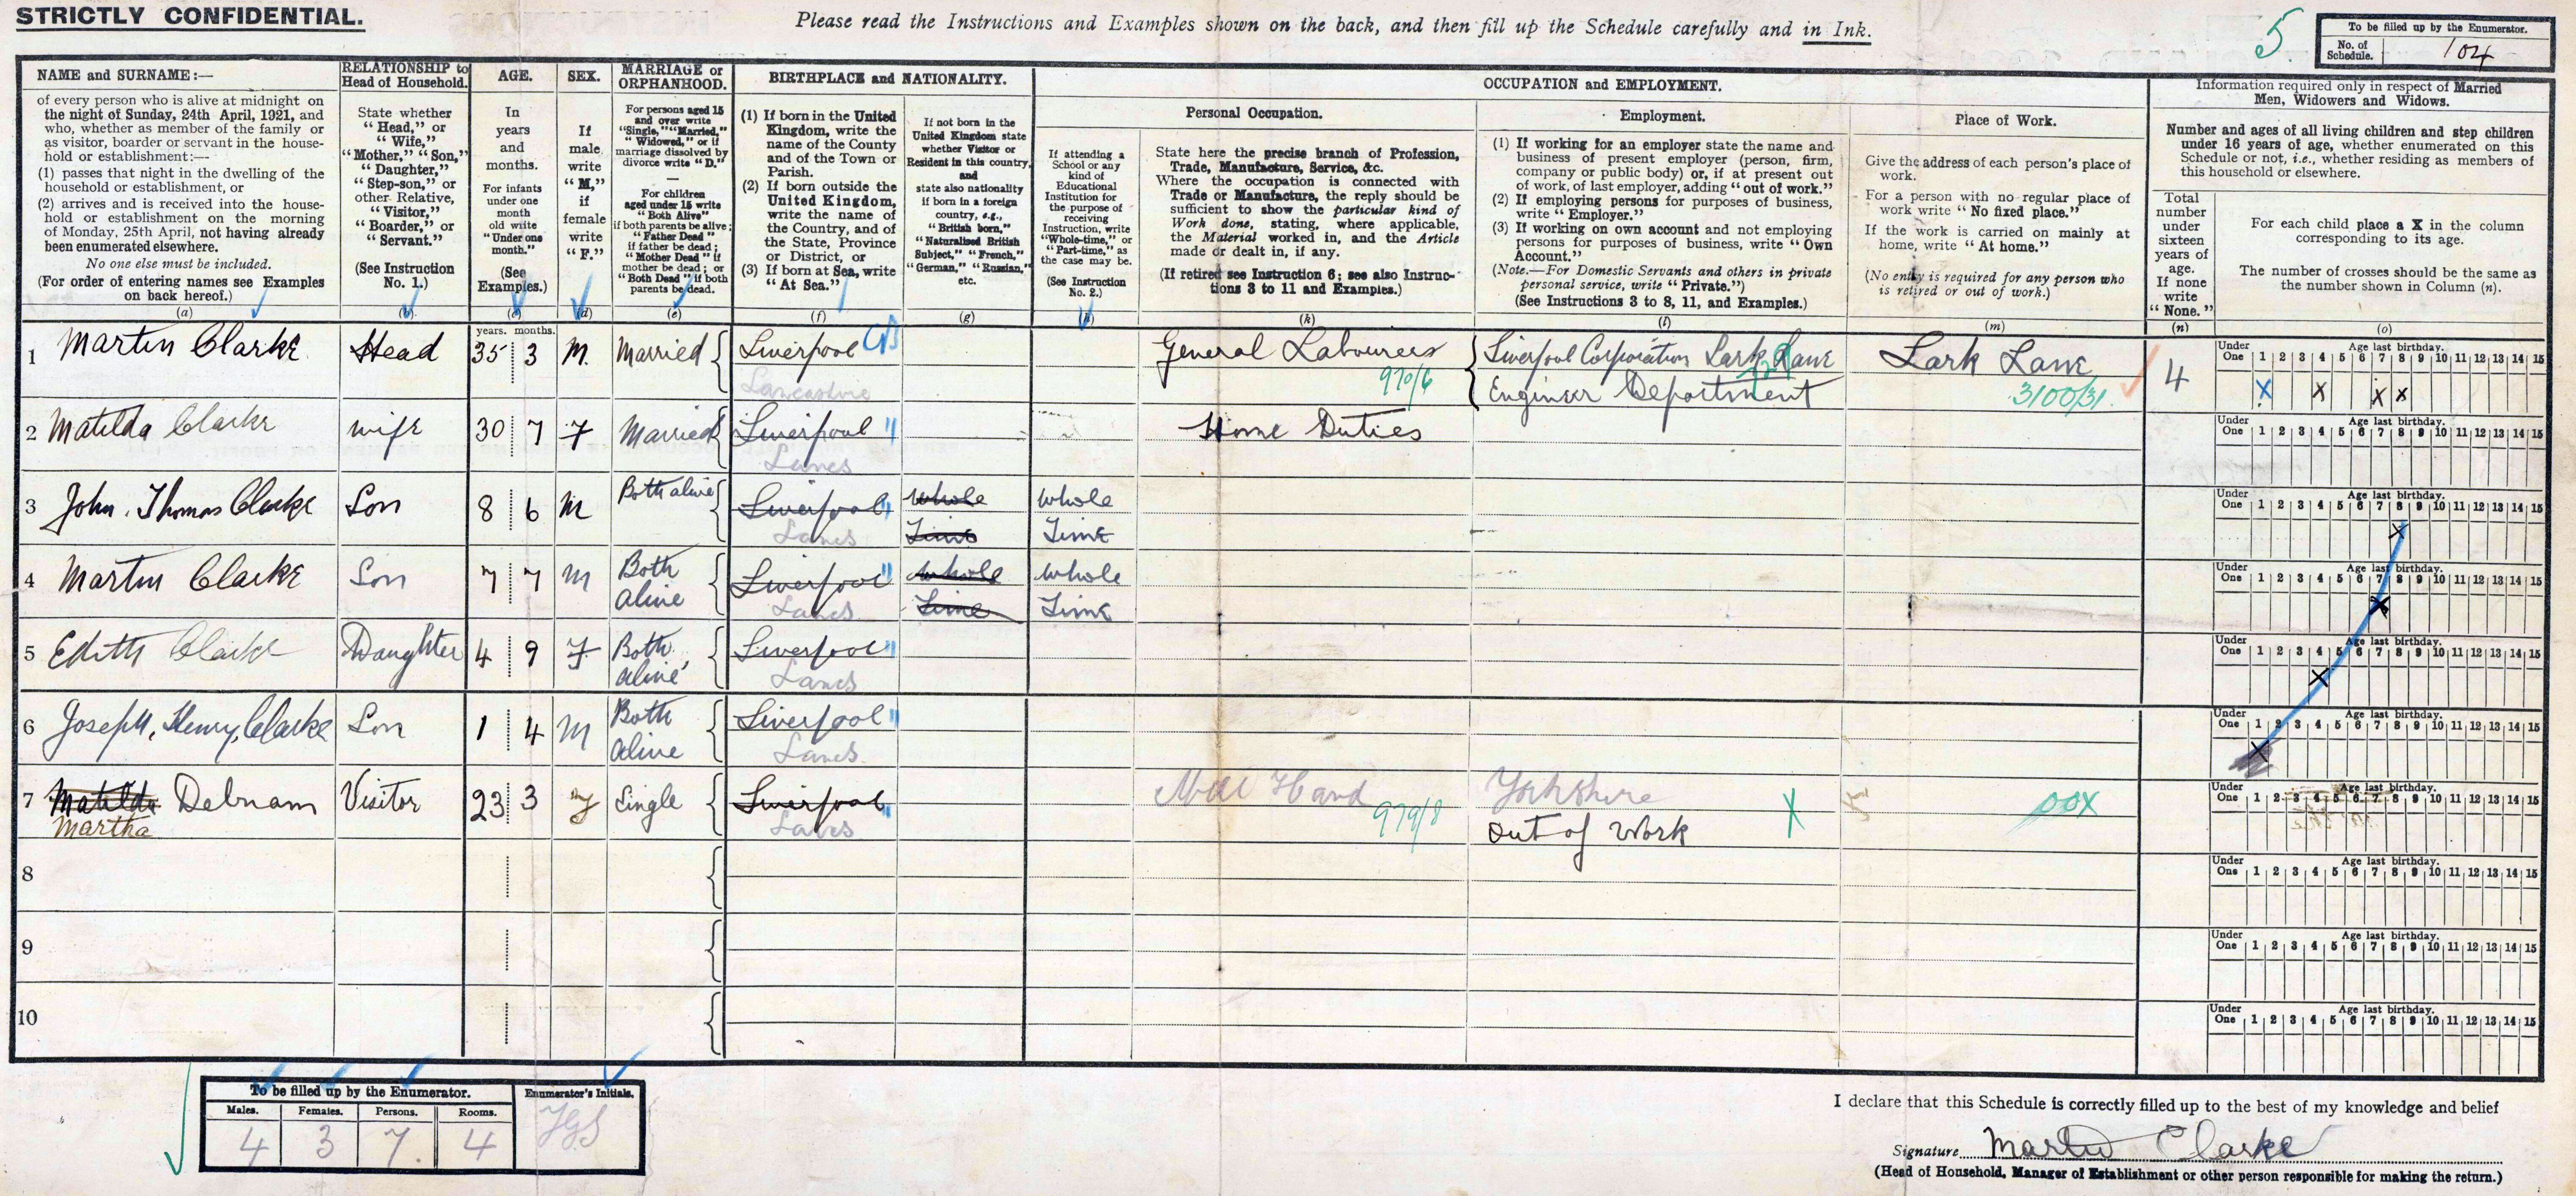 STRICTLY CONFIDENTIAL.
Please read the Instructions and Examples shown on the back, and then fill up the Schedule carefully and in Ink.
5.
To be filled up by the Enumerator.
No. of Schedule. 104
NAME and SURNAME:—
of every person who is alive at midnight on
the night of Sunday, 24th April, 1921, and
who, whether as member of the family or
as visitor, boarder or servant in the house-
hold or establishment:—
(1) passes that night in the dwelling of the
household or establishment, or
(2) arrives and is received into the house-
hold or establishment on the morning
of Monday, 25th April, not having already
been enumerated elsewhere.
No one else must be included.
(For order of entering names see Examples
on back hereof.)
(a)
RELATIONSHIP to
Head of Household.
State whether
"Head," or
"Wife,"
"Mother," "Son,"
"Daughter,"
"Step-son," or
other Relative,
"Visitor,"
"Boarder," or
"Servant."
(See Instruction
No. 1.)
(b)
AGE.
In
years
and
months.
For infants
under one
month
old write
"Under one
month."
(See
Examples.)
(c)
SEX.
If
male
write
"M,"
if
female
write
"F."
(d)
MARRIAGE or
ORPHANHOOD.
For persons aged 15
and over write
"Single," "Married,"
"Widowed," or if
marriage dissolved by
divorce write "D."
For children
aged under 15 write
"Both Alive"
if both parents be alive;
"Father Dead"
if father be dead;
"Mother Dead" if
mother be dead; or
"Both Dead" if both
parents be dead.
(e)
BIRTHPLACE and NATIONALITY.
(1) If born in the United
Kingdom, write the
name of the County
and of the Town or
Parish.
(2) If born outside the
United Kingdom,
write the name of
the Country, and of
the State, Province
or District, or
(3) If born at Sea, write
"At Sea."
(f)
If not born in the
United Kingdom state
whether Visitor or
Resident in this country,
and
state also nationality
if born in a foreign
country, e.g.,
"British born,"
"Naturalised British
Subject," "French,"
"German," "Russian,"
etc.
(g)
OCCUPATION and EMPLOYMENT.
Personal Occupation.
If attending a
School or any
kind of
Educational
Institution for
the purpose of
receiving
Instruction, write
"Whole-time," or
"Part-time," as
the case may be.
(See Instruction
No. 2.)
(h)
State here the precise branch of Profession,
Trade, Manufacture, Service, &c.
Where the occupation is connected with
Trade or Manufacture, the reply should be
sufficient to show the particular kind of
Work done, stating, where applicable,
the Material worked in, and the Article
made or dealt in, if any.
(If retired see Instruction 6; see also Instruc-
tions 3 to 11 and Examples.)
(k)
Employment.
(1) If working for an employer state the name and
business of present employer (person, firm,
company or public body) or, if at present out
of work, of last employer, adding "out of work."
(2) If employing persons for purposes of business,
write "Employer."
(3) If working on own account and not employing
persons for purposes of business, write "Own
Account."
(Note.—For Domestic Servants and others in private
personal service, write "Private.")
(See Instructions 3 to 8, 11, and Examples.)
(l)
Place of Work.
Give the address of each person's place of
work.
For a person with no regular place of
work write "No fixed place."
If the work is carried on mainly at
home, write "At home."
(No entry is required for any person who
is retired or out of work.)
(m)
Information required only in respect of Married
Men, Widowers and Widows.
Number and ages of all living children and step children
under 16 years of age, whether enumerated on this
Schedule or not, i.e., whether residing as members of
this household or elsewhere.
Total
number
under
sixteen
years of
age.
If none
write
"None."
(n)
For each child place a X in the column
corresponding to its age.
The number of crosses should be the same as
the number shown in Column (n).
(o)
years. months.
1 Martin Clarke Head 35 3 M. Married Liverpool General Labourer Liverpool Corporation Lark Lane Lark Lane 4
Lancashire 970/6 Engineer Department 3100/31.
Under One 1 2 3 4 5 6 7 8 9 10 11 12 13 14 15
Age last birthday.
X X X X
2 Matilda Clarke wife 30 7 F Married Liverpool " Home Duties
Lancs
Under One 1 2 3 4 5 6 7 8 9 10 11 12 13 14 15
Age last birthday.
3 John. Thomas Clarke Son 8 6 M Both alive Liverpool " Whole Whole
Lancs Time Time
Under One 1 2 3 4 5 6 7 8 9 10 11 12 13 14 15
Age last birthday.
X
4 Martin Clarke Son 7 7 M Both alive Liverpool " Whole Whole
Lancs Time Time
Under One 1 2 3 4 5 6 7 8 9 10 11 12 13 14 15
Age last birthday.
X
5 Edith Clarke Daughter 4 9 F Both alive Liverpool "
Lancs
Under One 1 2 3 4 5 6 7 8 9 10 11 12 13 14 15
Age last birthday.
X
6 Joseph, Henry, Clarke Son 1 4 M Both alive Liverpool "
Lancs
Under One 1 2 3 4 5 6 7 8 9 10 11 12 13 14 15
Age last birthday.
X
7 Matilda Debnam Visitor 23 3 F Single Liverpool " Mill Hand Yorkshire
Martha Lancs 979/8 out of Work X 00X
Under One 1 2 3 4 5 6 7 8 9 10 11 12 13 14 15
Age last birthday.
8
Under One 1 2 3 4 5 6 7 8 9 10 11 12 13 14 15
Age last birthday.
9
Under One 1 2 3 4 5 6 7 8 9 10 11 12 13 14 15
Age last birthday.
10
Under One 1 2 3 4 5 6 7 8 9 10 11 12 13 14 15
Age last birthday.
To be filled up by the Enumerator.
Males. Females. Persons. Rooms.
4 3 7. 4
Enumerator's Initials.
I declare that this Schedule is correctly filled up to the best of my knowledge and belief
Signature Martin Clarke
(Head of Household, Manager of Establishment or other person responsible for making the return.)